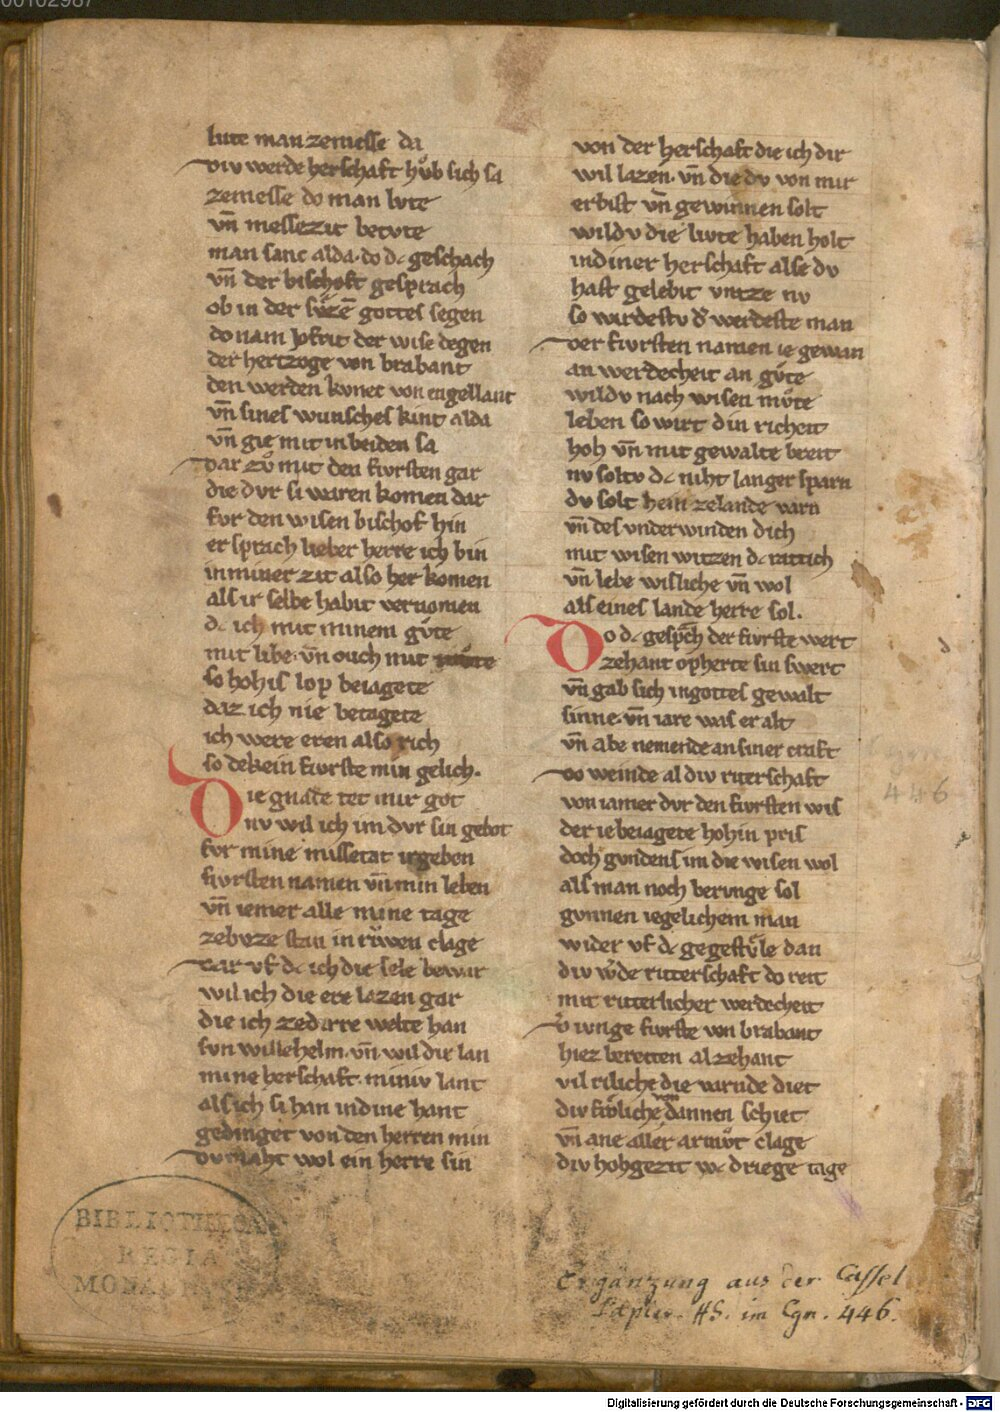 00102987
lute man zemesse da
Div werde herschaft hůb sich sa
zemesse do man lvte
vn̄ messezit betvte
man sanc alda. do dc geschach
vn̄ der bischoft gesprach
ob in der sv̊zē gottes segen
do nam Jofrit der wise degen
der hertzoge von brabant
den werden kvnec von engellant
vn̄ sines wunsches kint alda
vn̄ gie mit in beiden sa
Dar zů mit den fvrsten gar
die dvr si waren komen dar
fvr den wisen bischof hin
er sprach lieber herre ich bin
in miner zit also her komen
als ir selbe habit vernomen
dc ich mit minem gv̊te
mit libe. vn̄ ouch mit mv̊te
so hohis lop beiagete
daz ich nie betagete
ich were eren also rich
so dekein fvrste min gelich.
Die gnade tet mir got
nv wil ich im dvr sin gebot
fvr mine missetat irgeben
fvrsten namen vn̄ min leben
vn̄ iemer alle mine tage
zebvze stan in rv̊wen clage
Dar vf dc ich die sele bewar
wil ich die ere lazen gar
die ich zedirre welte han
svn willehelm. vn̄ wil dir lan
mine herschaft. miniv lant
als ich si han in dine hant
gedinget von den herren min
Dv maht wol ein herre sin
von der herschaft die ich dir
wil lazen. vn̄ die dv von mir
erbist vn̄ gewinnen solt
wildv die livte haben holt
in diner herschaft alse dv
hast gelebit vntze nv
so wirdestv d' werdeste man
Der fvrsten namen ie gewan
an werdecheit an gv̊te
wildv nach wisen mv̊te
leben so wirt din richeit
hoh vn̄ mit gewalte breit
nv soltv dc niht langer sparn
dv solt hein zelande varn
vn̄ des vnderwinden dich
mit wisen witzen dc rat ich
vn̄ lebe wisliche vn̄ wol
als eines lande herre sol.
Do dc gesp̄ch der fvrste wert
zehant opherte sin swert
vn̄ gab sich ingottes gewalt
sinne. vn̄ iare was er alt
vn̄ abe nemende an siner craft
Do weinde al div riterschaft
von iamer dvr den fvrsten wis
der ie beiagete hohin pris
doch gvndens im die wisen wol
als man noch beringe sol
gvnnen iegelichem man
wider vf dc gegestv̊le dan
div w'de ritterschaft do reit
mit ritterlicher werdecheit
D' ivnge fvrste von brabant
hiez bereiten alzehant
vil riliche die varnde diet
div frôliche von dannen schiet
vn̄ ane aller armv̊t clage
div hohgezit wc driege tage
446
BIBLIOTHECA
REGIA
MONACENSIS
Ergänzung aus der Cassel
Papier. HS. im Cgm. 446.
Digitalisierung gefördert durch die Deutsche Forschungsgemeinschaft - DFG